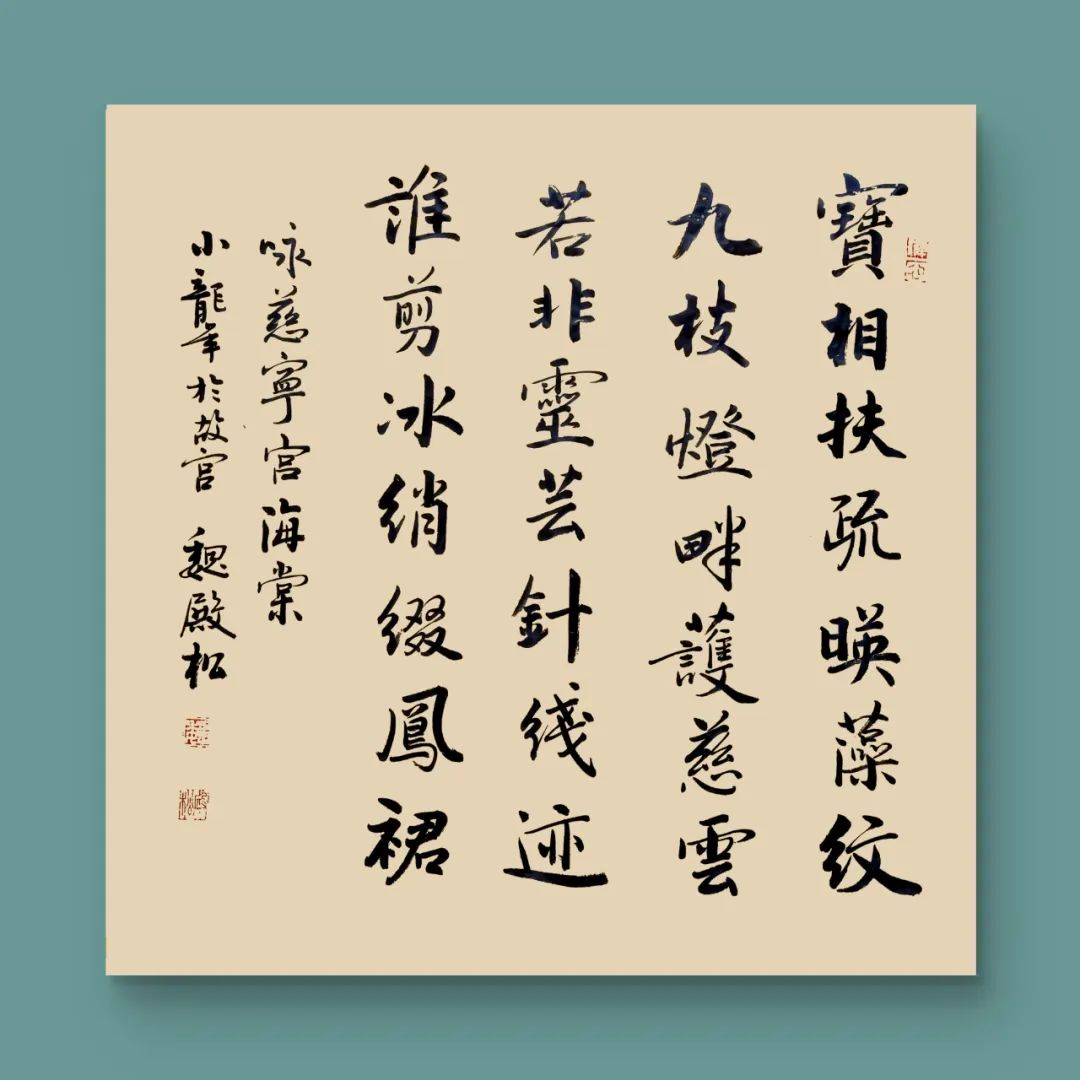 寶相扶疏暎藻紋
九枝燈畔護慈雲
若非靈芸針綫迹
誰剪冰綃綴鳳裙
咏慈寧宮海棠
小龍年於故宮 魏殿松